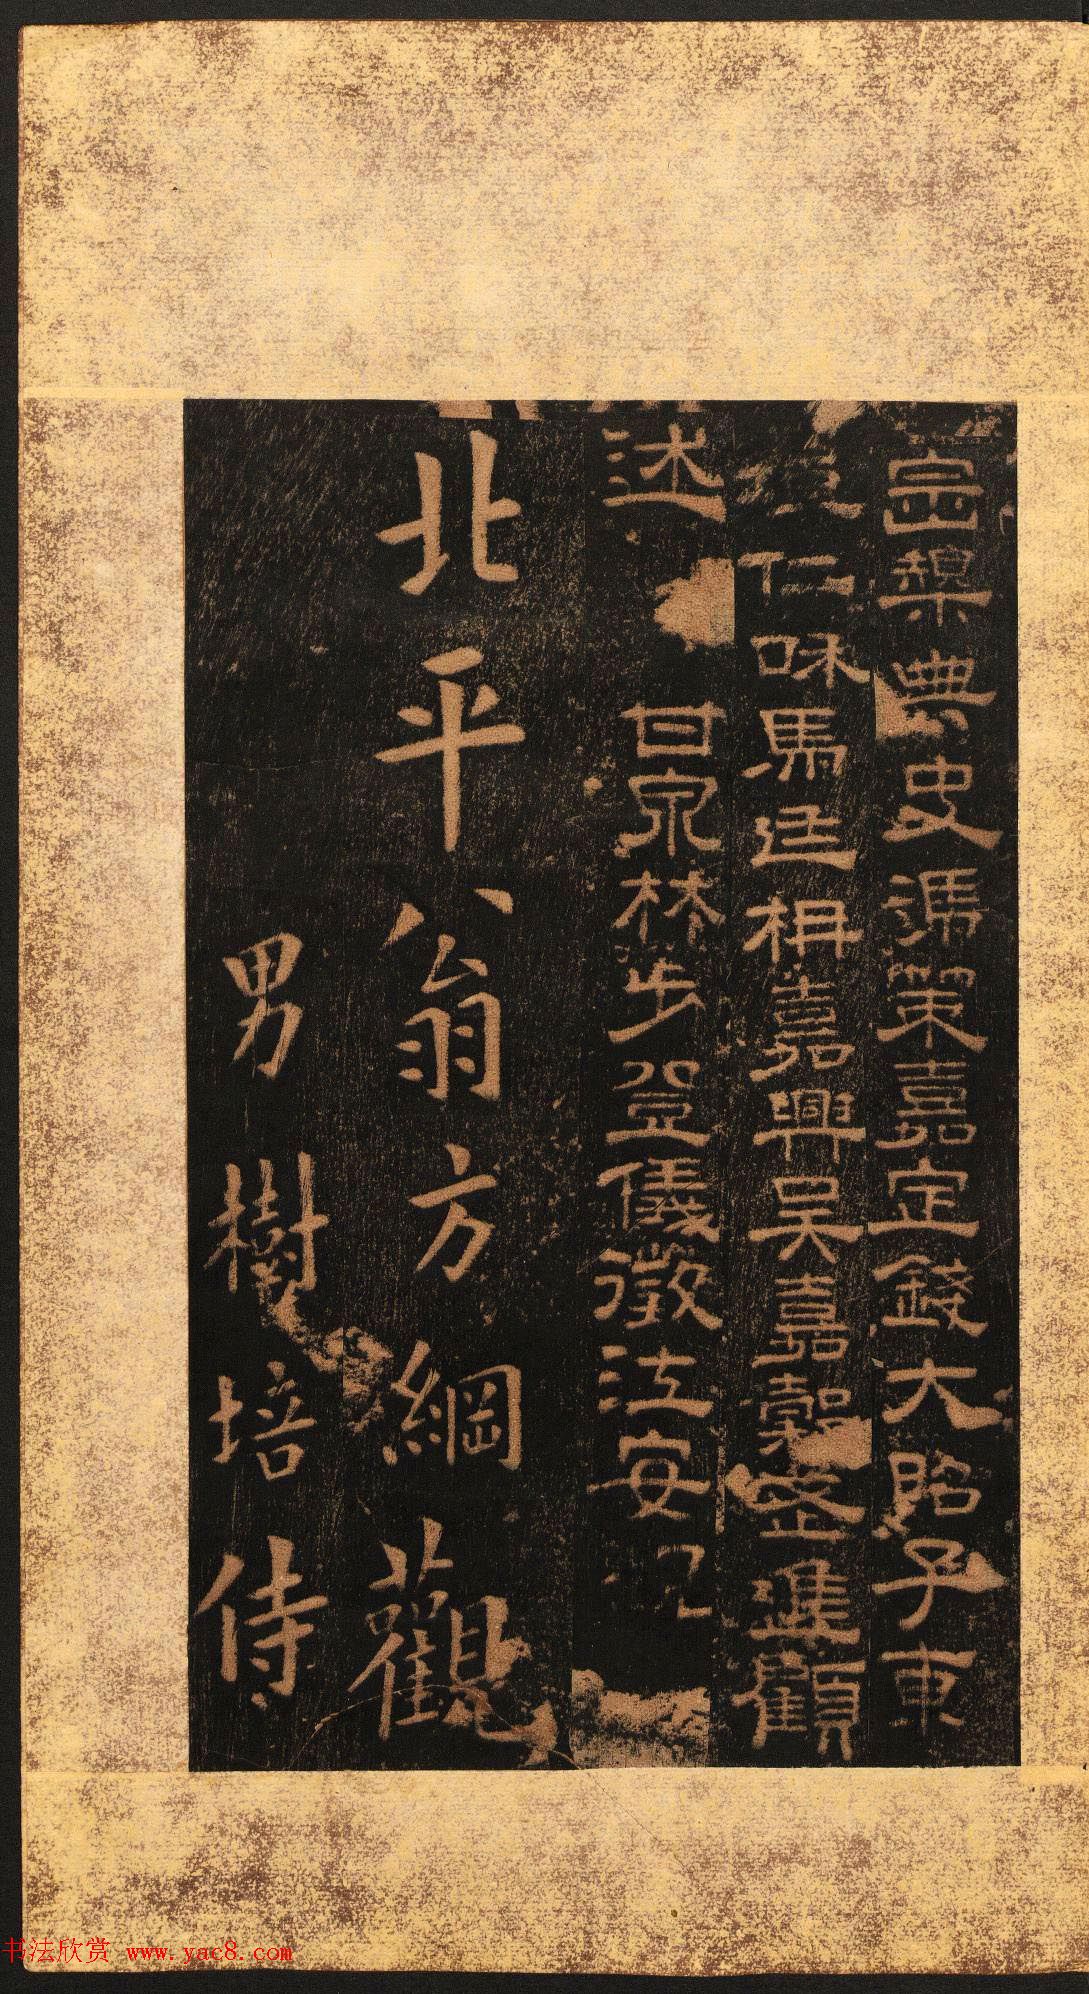 典史馮策嘉定錢大昭子東
仁咊馬廷枏嘉興吳嘉穀進顧
述 甘泉林步登儀徵江安
北平翁方綱觀
男樹培侍
书法欣赏 www.yac8.com